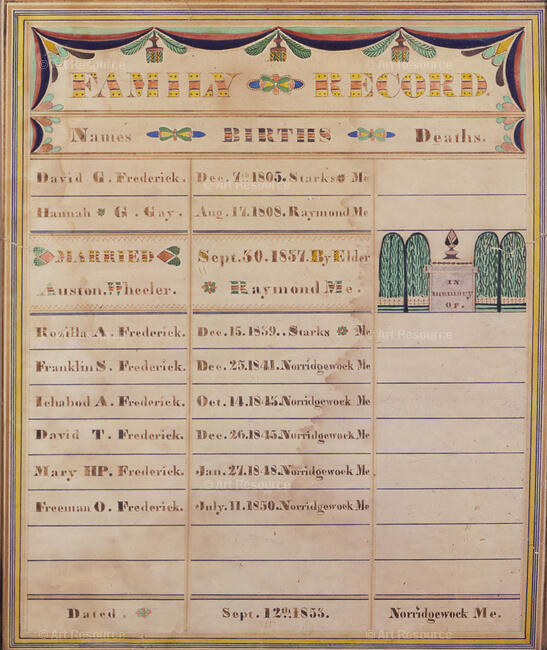 © Art Resource © Art Resource © Art Resource
FAMILY RECORD.
Names BIRTHS Deaths.
David G. Frederick. Dec. 7th 1805. Starks Me
© Art Resource
Hannah G. Gay. Aug. 17. 1808. Raymond Me
MARRIED Sept. 30. 1837. By Elder
Auston. Wheeler. Raymond Me.
IN
memory
OF.
Rozilla A. Frederick. Dec. 15. 1839.. Starks Me
© Art Resource © Art Resource
Franklin S. Frederick. Dec. 25. 1841. Norridgewock Me
Ichabod A. Frederick. Oct. 14. 1843. Norridgewock Me
David T. Frederick. Dec. 26. 1845. Norridgewock Me
Mary HP. Frederick. Jan. 27. 1848. Norridgewock Me
© Art Resource
Freeman O. Frederick. July. 11. 1850. Norridgewock Me
Dated. Sept. 12th 1853. Norridgewock Me.
© Art Resource © Art Resource © Art Resource